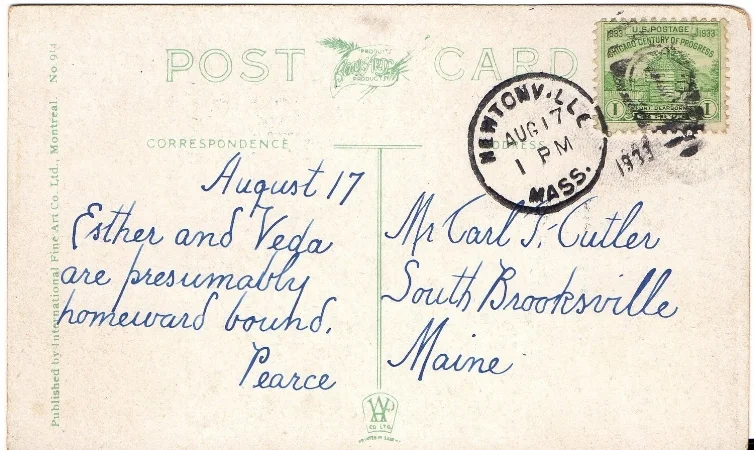 POST CARD
CORRESPONDENCE
ADDRESS
August 17
Esther and Veda
are presumably
homeward bound.
Pearce
Mr Carl F. Cutler
South Brooksville
Maine
NEWTONVILLE
AUG 17
1 PM
MASS.
1933
1933 U.S. POSTAGE 1933
CHICAGO CENTURY OF PROGRESS
1 1
Published by International Fine Art Co. Ltd., Montreal
CO LTD.